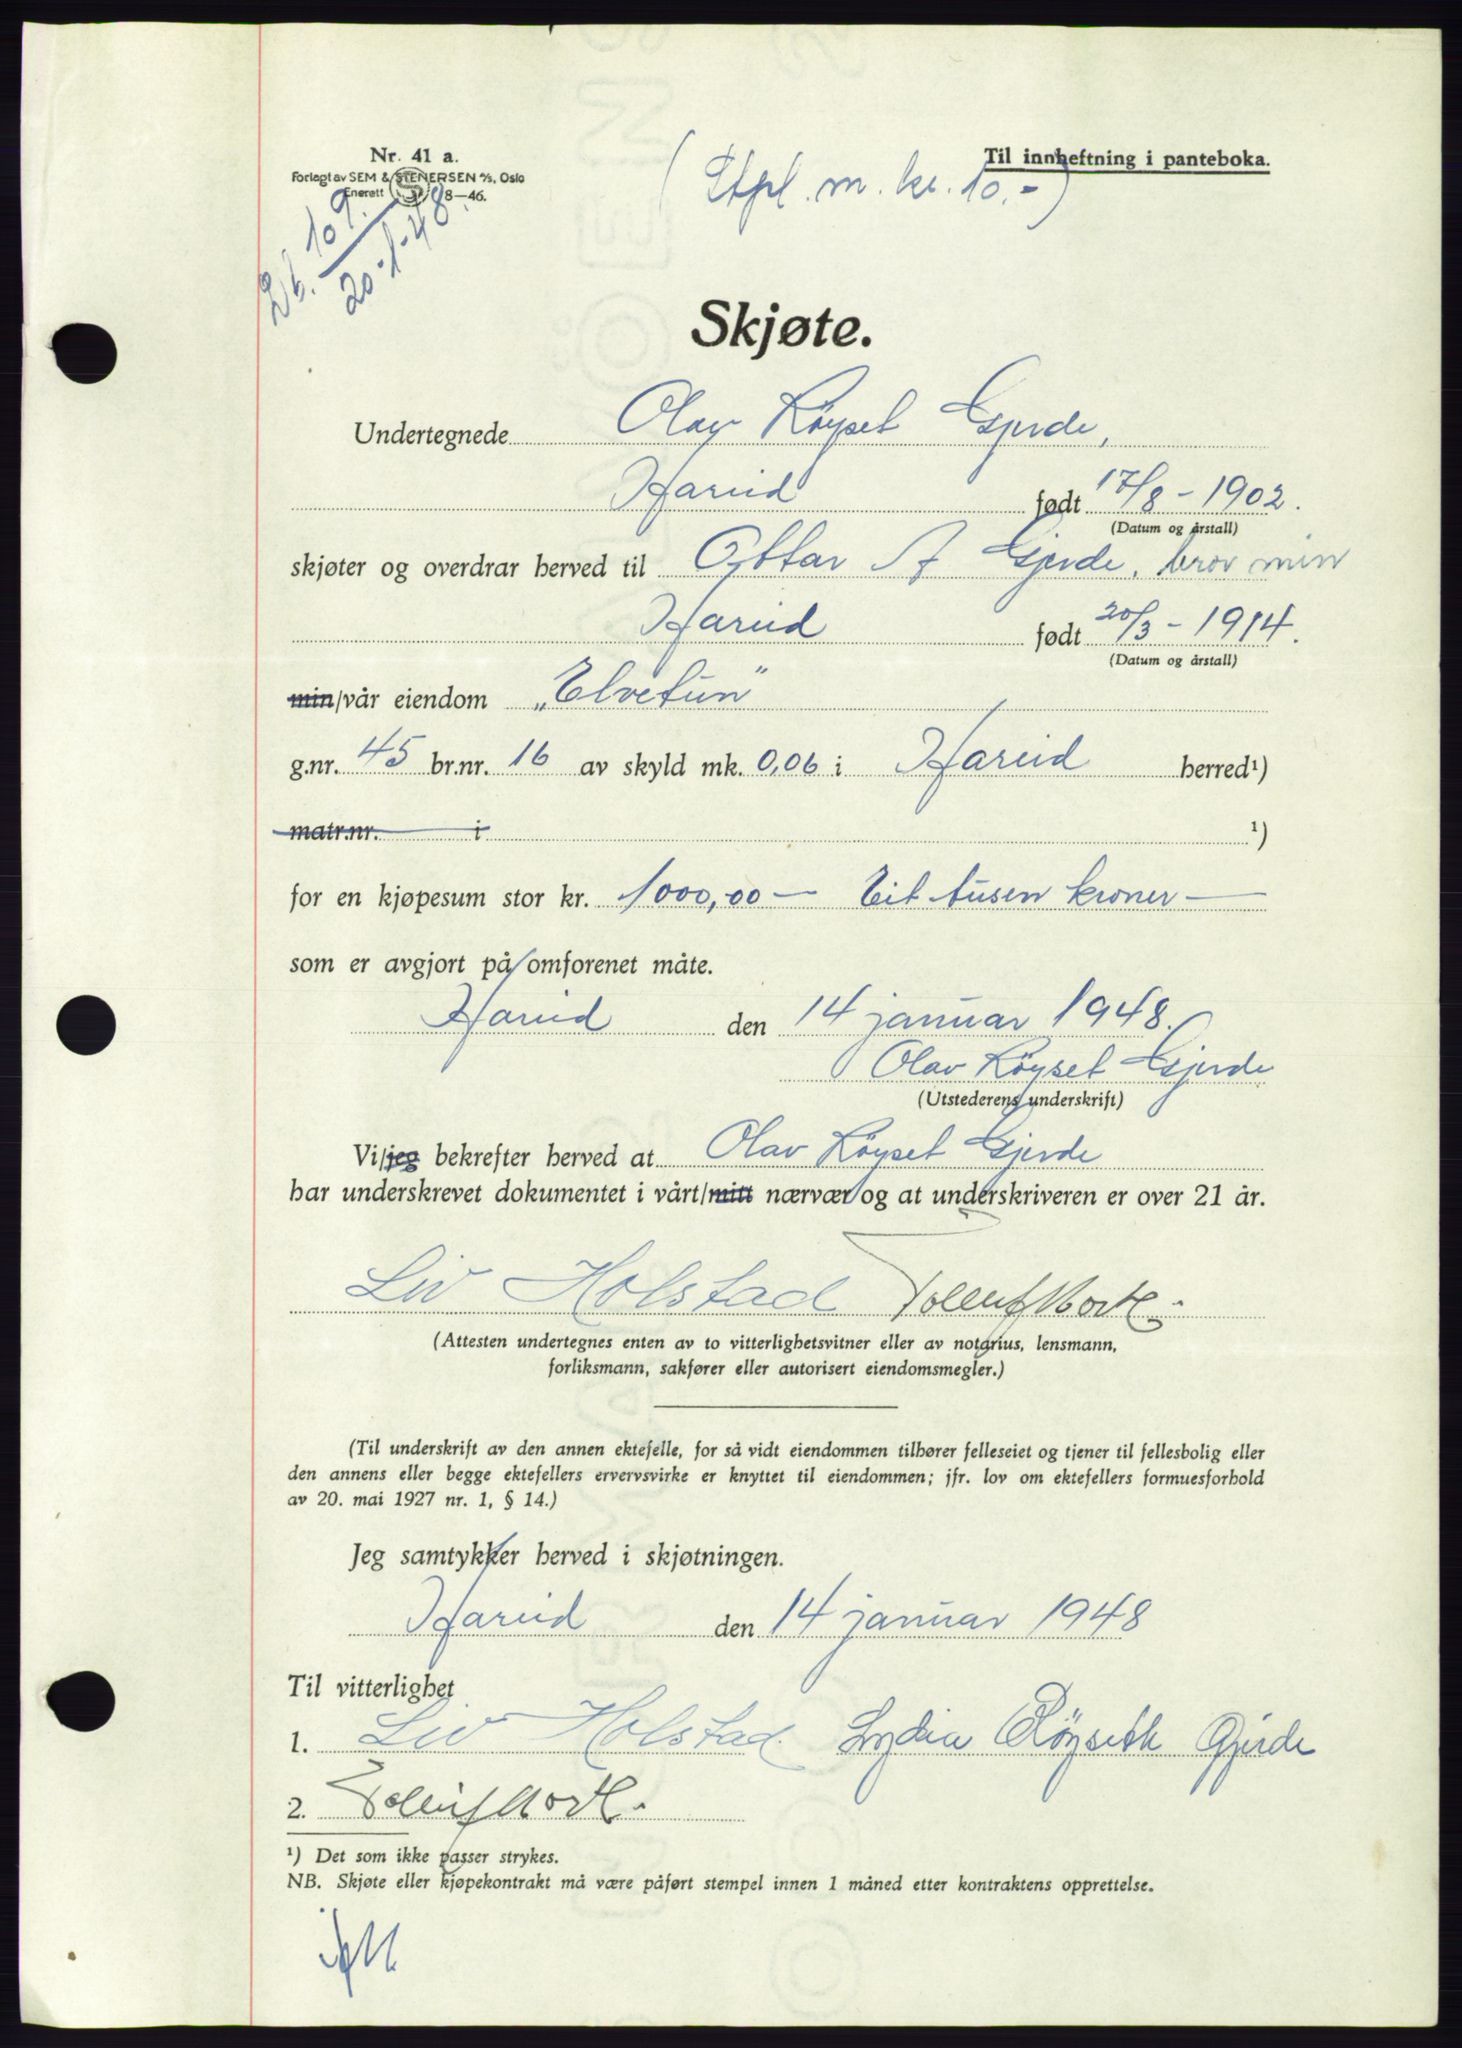 Nr. 41 a.
Forlagt av SEM & STENERSEN A/S, Oslo
Enerett S 8—46.
Til innheftning i panteboka.
(Stpl. m. kr. 10.-)
Db. 109
20-1-48.
Skjøte.
Undertegnede Olav Röyset Gjerde,
Hareid født 17/8 - 1902.
(Datum og årstall)
skjøter og overdrar herved til Ottar A Gjerde, bror min
Hareid født 20/3 - 1914.
(Datum og årstall)
min/vår eiendom „Elvetun"
g.nr. 45 br.nr. 16 av skyld mk. 0,06 i Hareid herred¹)
matr.nr. i ¹)
for en kjøpesum stor kr. 1000,00 — Eit tusen kroner —
som er avgjort på omforenet måte.
Hareid den 14 januar 1948.
Olav Röyset Gjerde
(Utstederens underskrift)
Vi/jeg bekrefter herved at Olav Röyset Gjerde
har underskrevet dokumentet i vårt/mitt nærvær og at underskriveren er over 21 år.
Liv Holstad
(Attesten undertegnes enten av to vitterlighetsvitner eller av notarius, lensmann,
forliksmann, sakfører eller autorisert eiendomsmegler.)
(Til underskrift av den annen ektefelle, for så vidt eiendommen tilhører felleseiet og tjener til fellesbolig eller
den annens eller begge ektefellers ervervsvirke er knyttet til eiendommen; jfr. lov om ektefellers formuesforhold
av 20. mai 1927 nr. 1, § 14.)
Jeg samtykker herved i skjøtningen.
Hareid den 14 januar 1948
Til vitterlighet
1. Liv Holstad. Lydia Röyseth Gjerde
2.
¹) Det som ikke passer strykes.
NB. Skjøte eller kjøpekontrakt må være påført stempel innen 1 måned etter kontraktens opprettelse.